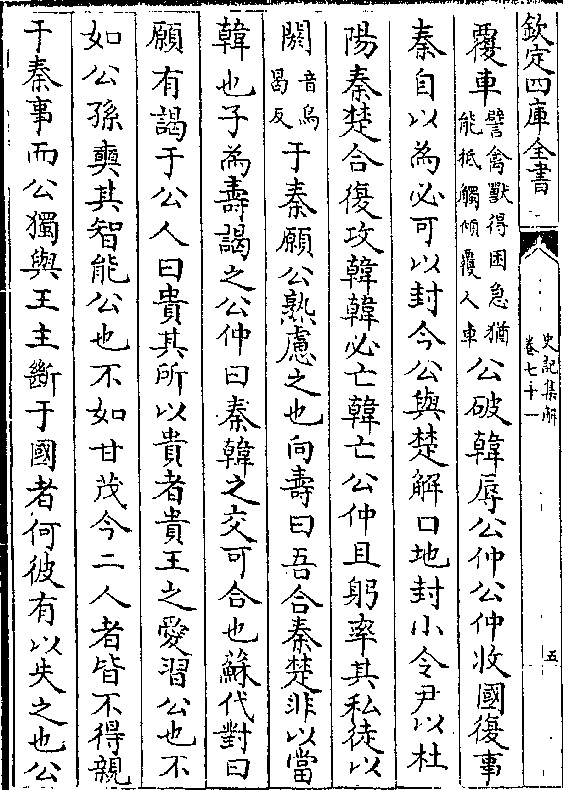 欽定四庫全書
史記集解
卷七十一
五
覆車譬禽獸得困急猶能抵觸傾覆人車公破韓辱公仲公仲收國復事
秦自以為必可以封今公與楚解口地封小令尹以杜
陽秦楚合復攻韓韓必亡韓亡公仲且躬率其私徒以
閼音烏曷反于秦願公熟慮之也向壽曰吾合秦楚非以當
韓也子為壽謁之公仲曰秦韓之交可合也蘇代對曰
願有謁于公人曰貴其所以貴者貴王之愛習公也不
如公孫奭其智能公也不如甘茂今二人者皆不得親
于秦事而公獨與王主斷于國者何彼有以失之也公